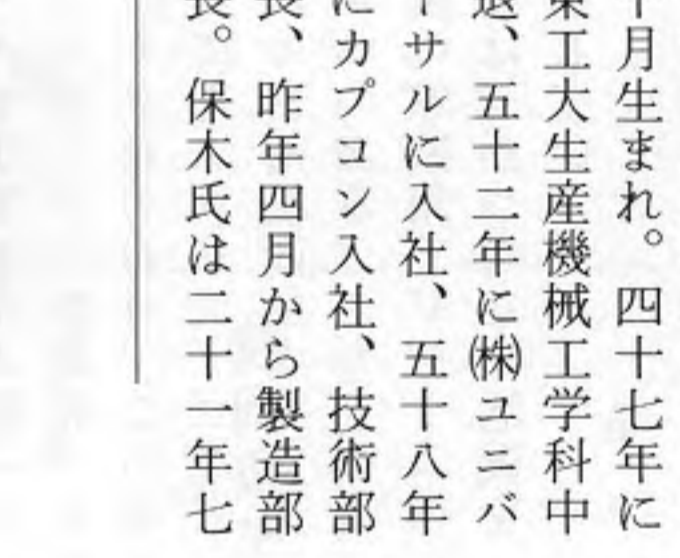 十月生まれ。四十七年に
東工大生産機械工学科中
退、五十二年に㈱ユニバ
ーサルに入社、五十八年
にカプコン入社、技術部
長、昨年四月から製造部
長。保木氏は二十一年七